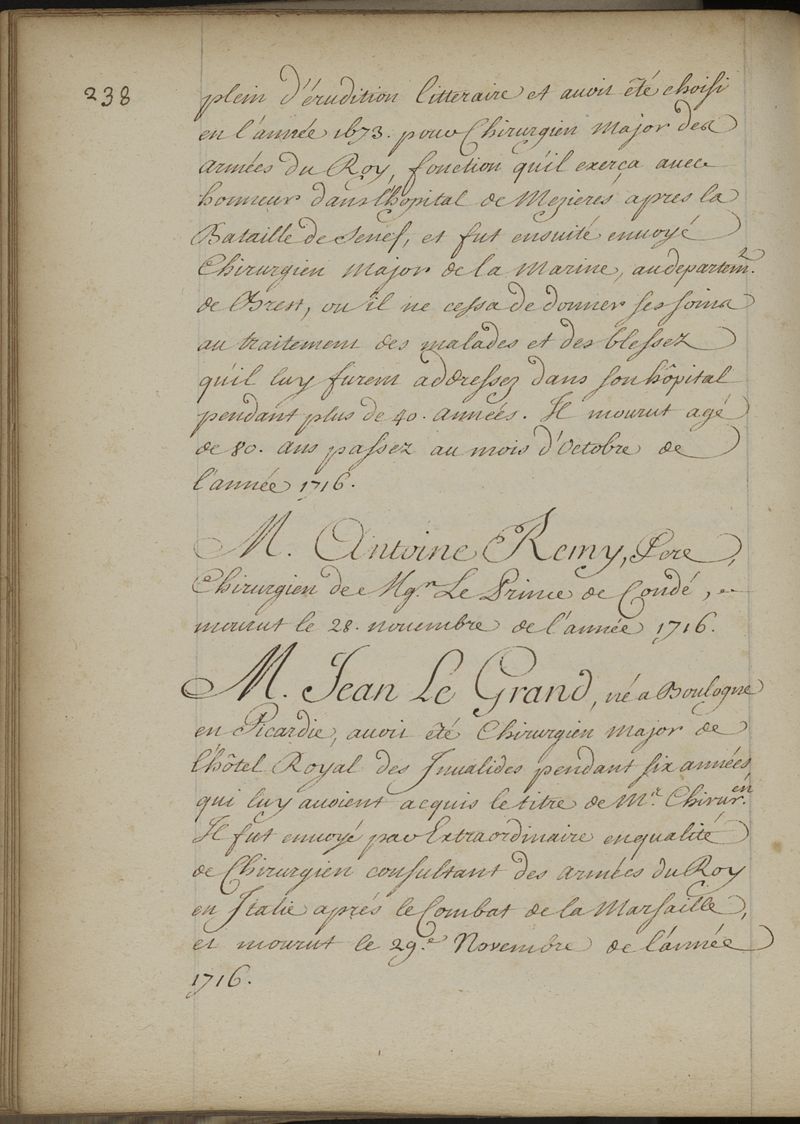 238
plein d'érudition litteraire et avoit été choisi
en l'année 1673. pour Chirurgien Major des
armées du Roy, fonction qu'il exerça avec
honneur dans l'hôpital de Mezieres après la
Bataille de Senef, et fut ensuite envoyé
Chirurgien Major de la Marine, au departemt.
de Brest, ou il ne cessa de donner ses soins
au traitement des malades et des blessez
qu'il luy furent addressez dans son hôpital
pendant plus de 40. années. Il mourut agé
de 80. ans passez au mois d'Octobre de
l'année 1716.
M. Antoine Remy, Pere,
Chirurgien de Mgr. Le Prince de Condé,
mourut le 28. novembre de l'année 1716.
M. Jean Le Grand, né a Boulogne
en Picardie, avoit été Chirurgien Major de
l'hôtel Royal des Invalides pendant six années
qui luy avoient acquis le titre de Mc. Chiruren.
Il fut envoyé par Extraordinaire en qualité
de Chirurgien consultant des armées du Roy
en Italie aprés le Combat de la Marsaille,
et mourut le 29.e Novembre de l'année
1716.